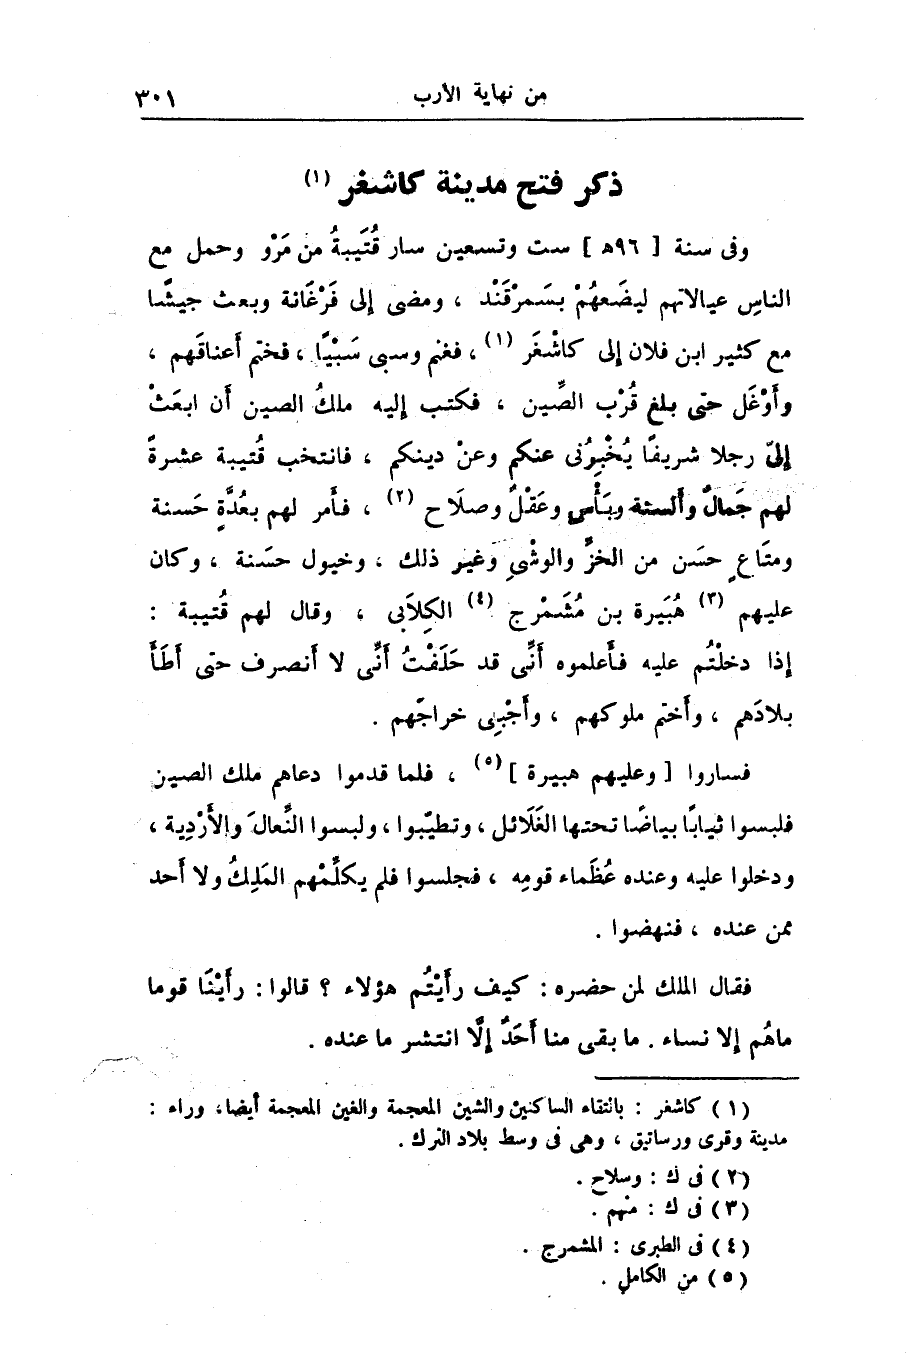 من نهاية الأرب ٣٠١
ذكر فتح مدينة كاشغر (١)
وفى سنة [ ٩٦ھ ] ست وتسعين سار قُتَيبةُ من مَرْو وحمل مع
الناسِ عيالاتهم ليضَعهُمْ بسَمرْقَنْد ، ومضى إلى فَرْغَانة وبعث جيشًا
مع كثير ابن فلان إلى كاشْغَر (١) ، فغنم وسبى سَبْيًا ، فختم أعناقَهم ،
وأَوْغَل حتى بلغ قُرْب الصِّين ، فكتب إليه ملكُ الصين أن ابعَثْ
إلىّ رجلا شريفًا يُخْبِرُنى عنكم وعنْ دينكم ، فانتخب قُتيبة عشرةً
لهم جَمالٌ وألسنة وبَأْس وعَقْلٌ وصلَاح (٢) ، فأَمر لهم بعُدَّةٍ حَسنة
ومتَاعٍ حسَن من الخزِّ والوشْىِ وغير ذلك ، وخيول حسَنة ، وكان
عليهم (٣) هُبَيرة بن مُشَمْرج (٤) الكِلاَبى ، وقال لهم قُتيبة :
إذا دخلْتُم عليه فأَعلموه أَنِّى قد حَلَفْتُ أَنِّى لا أَنصرف حتى أَطَأَ
بلادَهم ، وأَختم ملوكهم ، وأَجْبِى خراجَهم .
فساروا [ وعليهم هبيرة ] (٥) ، فلما قدموا دعاهم ملك الصين
فلبسوا ثيابًا بياضًا تحتها الغَلَائل ، وتطيّبوا ، ولبسوا النِّعالَ والأَرْدية ،
ودخلوا عليه وعنده عُظَماء قومِه ، فجلسوا فلم يكلِّمْهم المَلِكُ ولا أَحد
ممن عنده ، فنهضوا .
فقال الملك لمن حضره : كيف رأَيْتُم هؤلاء ؟ قالوا : رأَيْنَا قوما
ماهُم إلا نساء . ما بقى منا أَحَدٌ إلَّا انتشر ما عنده .
(١) كاشغر : بالتقاء الساكنين والشين المعجمة والغين المعجمة أيضا، وراء :
مدينة وقرى ورساتيق ، وهى فى وسط بلاد الترك .
(٢) فى ك : وسلاح .
(٣) فى ك : منهم .
(٤) فى الطبرى : المشمرج .
(٥) من الكامل .